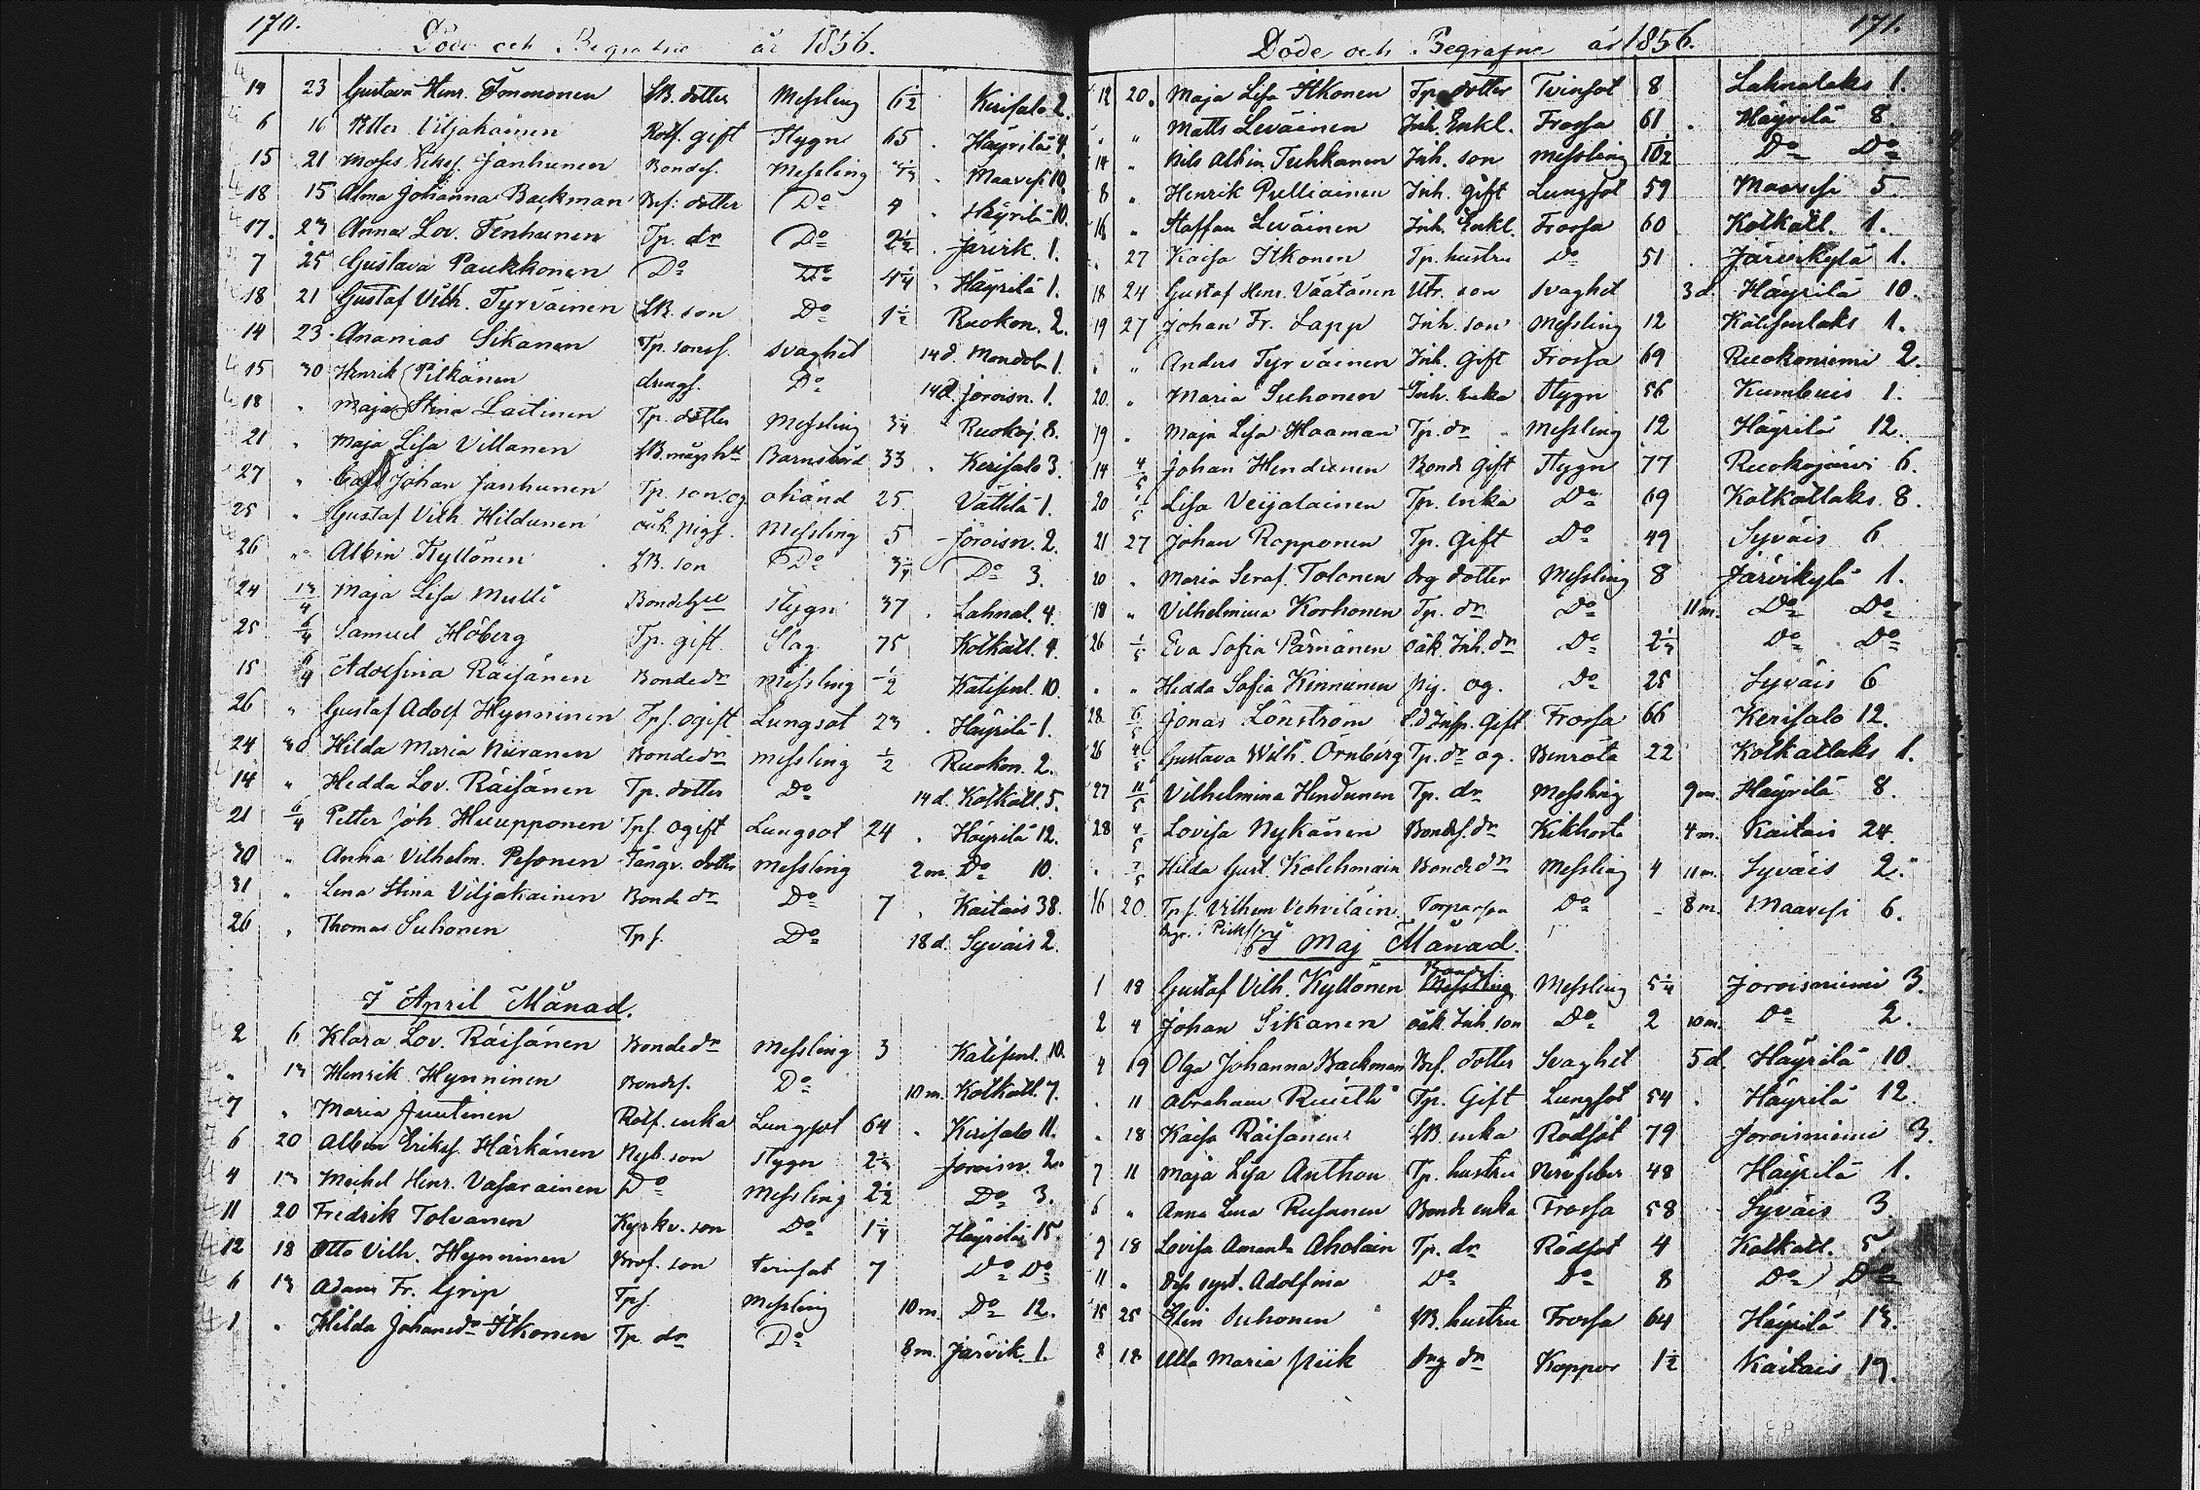 170.
Döde och Begrafne år 1856.
14 23 Gustava Henr. Immonen LB. dotter Messling 6 1/2 Kerisalo 2.
6 16 Petter Viljakainen Rotf. gift Stygn 65 Häyrilä 4.
15 21 Moses Janhunen Bondes. Messling Maavesi 10.
18 15 Alma Johanna Backman Bef: dotter Do 4 Häyrilä 10.
17. 23 Anna Lov. Tenhunen Tp. dr Do 2 1/2 Järvik. 1.
7 25 Gustava Paukkonen Do Do 4 1/4 Häyrilä 1.
18 21 Gustaf Vilh. Tyrväinen LB. son Do 1 1/2 Ruokon. 2.
14 23 Ananias Sikanen Tp. sons. svaghet 14 d. 1.
15 30 Henrik Pitkänen drengs. Do 14 d. Joroisn. 1.
18 " Maja Stina Laitinen Tp. dotter Messling 3 1/4 Ruokoj. 8.
21 " Maja Lisa Villanen LB. mågs Barnsbörd 33 Kerisalo 3.
27 " Johan Janhunen Tp. son og okänd 25 Vättilä 1.
25 " Gustaf Vilh. Hildunen oäk. pigs. Messling 5 Joroisn. 2.
26 " Albin Kyllönen LB. son Do 3 1/4 Do 3.
24 13/4 Maja Lisa Multi Stygn 37 Lahnal. 4.
25 6/4 Samuel Höberg Tp. gift. Slag 75 Kotkatl. 4.
15 6/4 Adolfina Räisänen Bondedr Messling 1/2 Katisenl. 10.
26 " Gustaf Adolf Hynninen Tps. ogift Lungsot 23 Häyrilä 1.
24 30 Hilda Maria Niiranen Bondedr Messling 1/2 Ruokon. 2.
14 " Hedda Lov. Räisänen Tp. dotter Do 14 d. Kotkatl. 5.
21 6/4 Petter Joh. Huupponen Tps. ogift Lungsot 24 Häyrilä 12.
30 " Anna Vilhelm. Pesonen Fångv. dotter Messling 2 m. Do 10.
31 " Lena Stina Viljakainen Bonde dr Do 7 Kaitais 38.
26 " Thomas Suhonen Tps. Do 18 d. Syväis 2.
I April Månad.
2 6 Klara Lov. Räisänen Bondedr Messling 3 Katisenl. 10.
" 13 Henrik Hynninen Bondes. Do 10 m. Kotkatl. 7.
7 " Maria Juutinen Rotf. enka Lungsot 64 Kerisalo 11.
6 20 Albin Eriksf. Härkönen Nyb. son Stygn Joroisn. 2.
4 13 Michel Henr. Vasarainen Do Messling 2 1/2 Do 3.
11 20 Fredrik Tolvanen Kyrkv. son Do 1 1/4 Häyrilä 15.
12 18 Otto Vilh. Hynninen Prof. son tvinsot 7 Do Do
6 13 Adam Fr. Grip Tps. Messling 10 m. Do 12.
1 " Hilda Johanedr Itkonen Tp. dr Do 8 m. Järvik. 1.
171.
Döde och Begrafne år 1856.
12 20. Maja Lisa Itkonen Tp. dotter Tvinsot 8 Lahnalaks 1.
" " Matts Leväinen Inh. Enkl. Frossa 61 Häyrilä 8.
14 " Nils Albin Tuhkanen Inh. son Messling 10 1/2 Do Do
8 " Henrik Pulliainen Inh. gift Lungsot 59 Maavesi 5
16 " Staffan Leväinen Inh. Enkl. Frossa 60 Kotkatl. 1.
" 27 Kaisa Itkonen Tp. hustru Do 51 Järvikylä 1.
18 24 Gustaf Henr. Väätänen Utr. son svaghet 3 d. Häyrilä 10.
19 27 Johan Fr. Lapp Inh. son Messling 12 Katisenlaks 1.
" " Anders Tyrväinen Inh. Gift Frossa 69 Ruokoniemi 2.
20. " Maria Suhonen Inh. enka Stygn 56 Kumbuis 1.
19 " Maja Lisa Haaman Tp. dr Messling 12 Häyrilä 12.
14 4/5 Johan Hendunen Bonde Gift Stygn 77 Ruokojärvi 6.
20 1/5 Lisa Veijalainen Tp. enka Do 69 Kotkatlaks 8.
21 27 Johan Ropponen Tp. Gift Do 49 Syväis 6
20 " Maria Seraf. Tolonen drg dotter Messling 8 Järvikylä 1.
18 " Vilhelmina Korhonen Tp. dr Do 11 m. Do Do
26 1/5 Eva Sofia Pärnänen oäk. Inh. dr Do Do Do
" " Hedda Sofia Kinnunen pig. og. Do 25 Syväis 6
28 6/5 Jonas Lönström Insp. Gift Frossa 66 Kerisalo 12.
26 4/5 Gustava Wilh. Örnberg Tp. dr og. Benröta 22 Kotkatlaks 1.
27 11/5 Vilhelmina Hendunen Tp. dr Messling 9 m. Häyrilä 8.
28 4/5 Lovisa Nykänen Bondes. dr Kikhosta 4 m. Kaitais 24.
" 7/5 Hilda Gust. Kolehmain Bondedr Messling 4 11 m. Syväis 2.
16 20 Tps. Vilhem Vehviläin. Torparson Do 8 m. Maavesi 6.
I Maj Månad.
1 18 Gustaf Vilh. Kyllönen Bondes. Messling 5 1/4 Joroisniemi 3.
2 4 Johan Sikanen oäk. Inh. son Do 2 10 m. Do 2.
4 19 Olga Johanna Backman Bef. dotter Svaghet 5 d. Häyrilä 10.
" 11 Abraham Ruuth Tp. Gift Lungsot 54 Häyrilä 12.
" 18 Kaisa Räisänen LB. enka Rödsot 79 Joroisniemi 3.
7 11 Maja Lisa Anthon Tp. hustru Nervfeber 48 Häyrilä 1.
6 " Anna Lena Rusanen Bonde enka Frossa 58 Syväis 3
9 18 Lovisa Amanda Aholain Tp. dr Rödsot 4 Kotkatl. 5
11 " Des syst. Adolfina Do Do 8 Do Do
15 25 Elin Suhonen LB. hustru Frossa 64 Häyrilä 13.
8 18 Ulla Maria Piik drg dr Koppor 1 1/2 Kaitais 19.